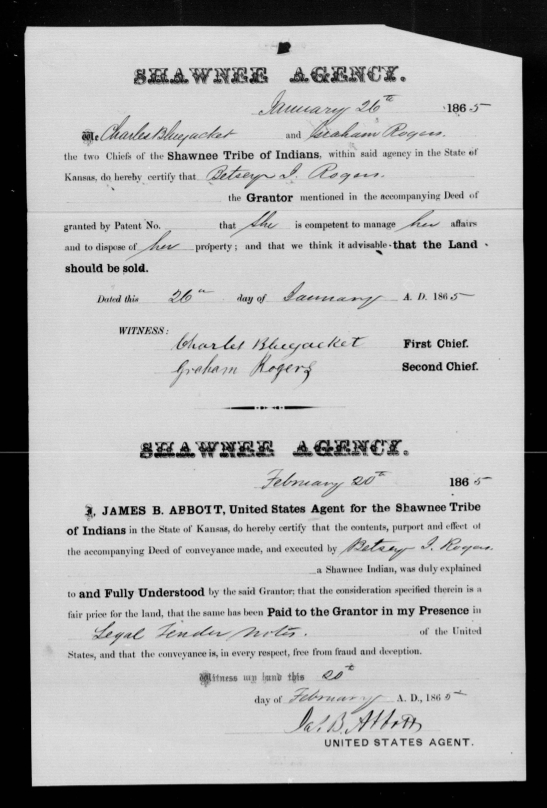 SHAWNEE AGENCY.
January 26th 1865
We Charles Bluejacket and Graham Rogers.
the two Chiefs of the Shawnee Tribe of Indians, within said agency in the State of
Kansas, do hereby certify that Betsey I. Rogers.
the Grantor mentioned in the accompanying Deed of
granted by Patent No. that She is competent to manage her affairs
and to dispose of her property; and that we think it advisable that the Land
should be sold.
Dated this 26th day of January A. D. 1865
WITNESS:
Charles Bluejacket First Chief.
Graham Rogers Second Chief.
SHAWNEE AGENCY.
February 20th 1865
I, JAMES B. ABBOTT, United States Agent for the Shawnee Tribe
of Indians in the State of Kansas, do hereby certify that the contents, purport and effect of
the accompanying Deed of conveyance made, and executed by Betsey I. Rogers.
a Shawnee Indian, was duly explained
to and Fully Understood by the said Grantor; that the consideration specified therein is a
fair price for the land, that the same has been Paid to the Grantor in my Presence in
Legal Tender Notes. of the United
States, and that the conveyance is, in every respect, free from fraud and deception.
Witness my hand this 20th
day of February A. D., 1865
Jas. B. Abbott
UNITED STATES AGENT.